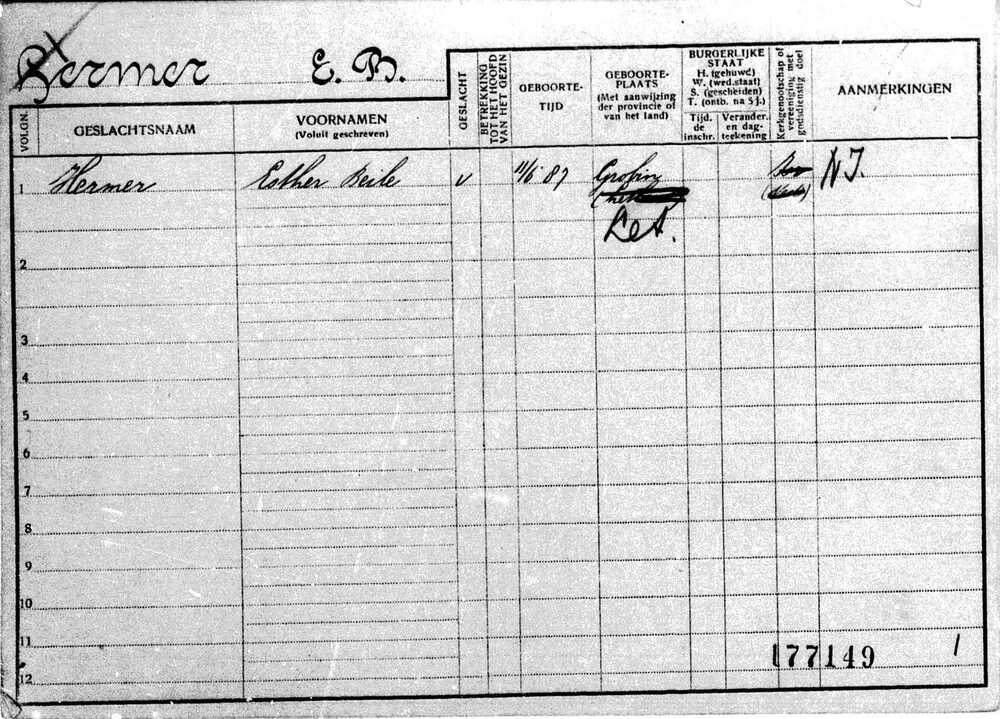 Hermer E. B.
VOLGN.
GESLACHTSNAAM
VOORNAMEN
(Voluit geschreven)
GESLACHT
BETREKKING
TOT HET HOOFD
VAN HET GEZIN
GEBOORTE-
TIJD
GEBOORTE-
PLAATS
(Met aanwijzing
der provincie of
van het land)
BURGERLIJKE
STAAT
H. (gehuwd)
W. (wed.staat)
S. (gescheiden)
T. (ontb. na 5 j.)
Tijd.
de
inschr.
Verander.
en dag-
teekening
Kerkgenootschap of
vereeniging met
godsdienstig doel
AANMERKINGEN
1 Hermer Esther Beile V 11/6 87 N.I.
2
3
4
5
6
7
8
9
10
11
12
177149 1